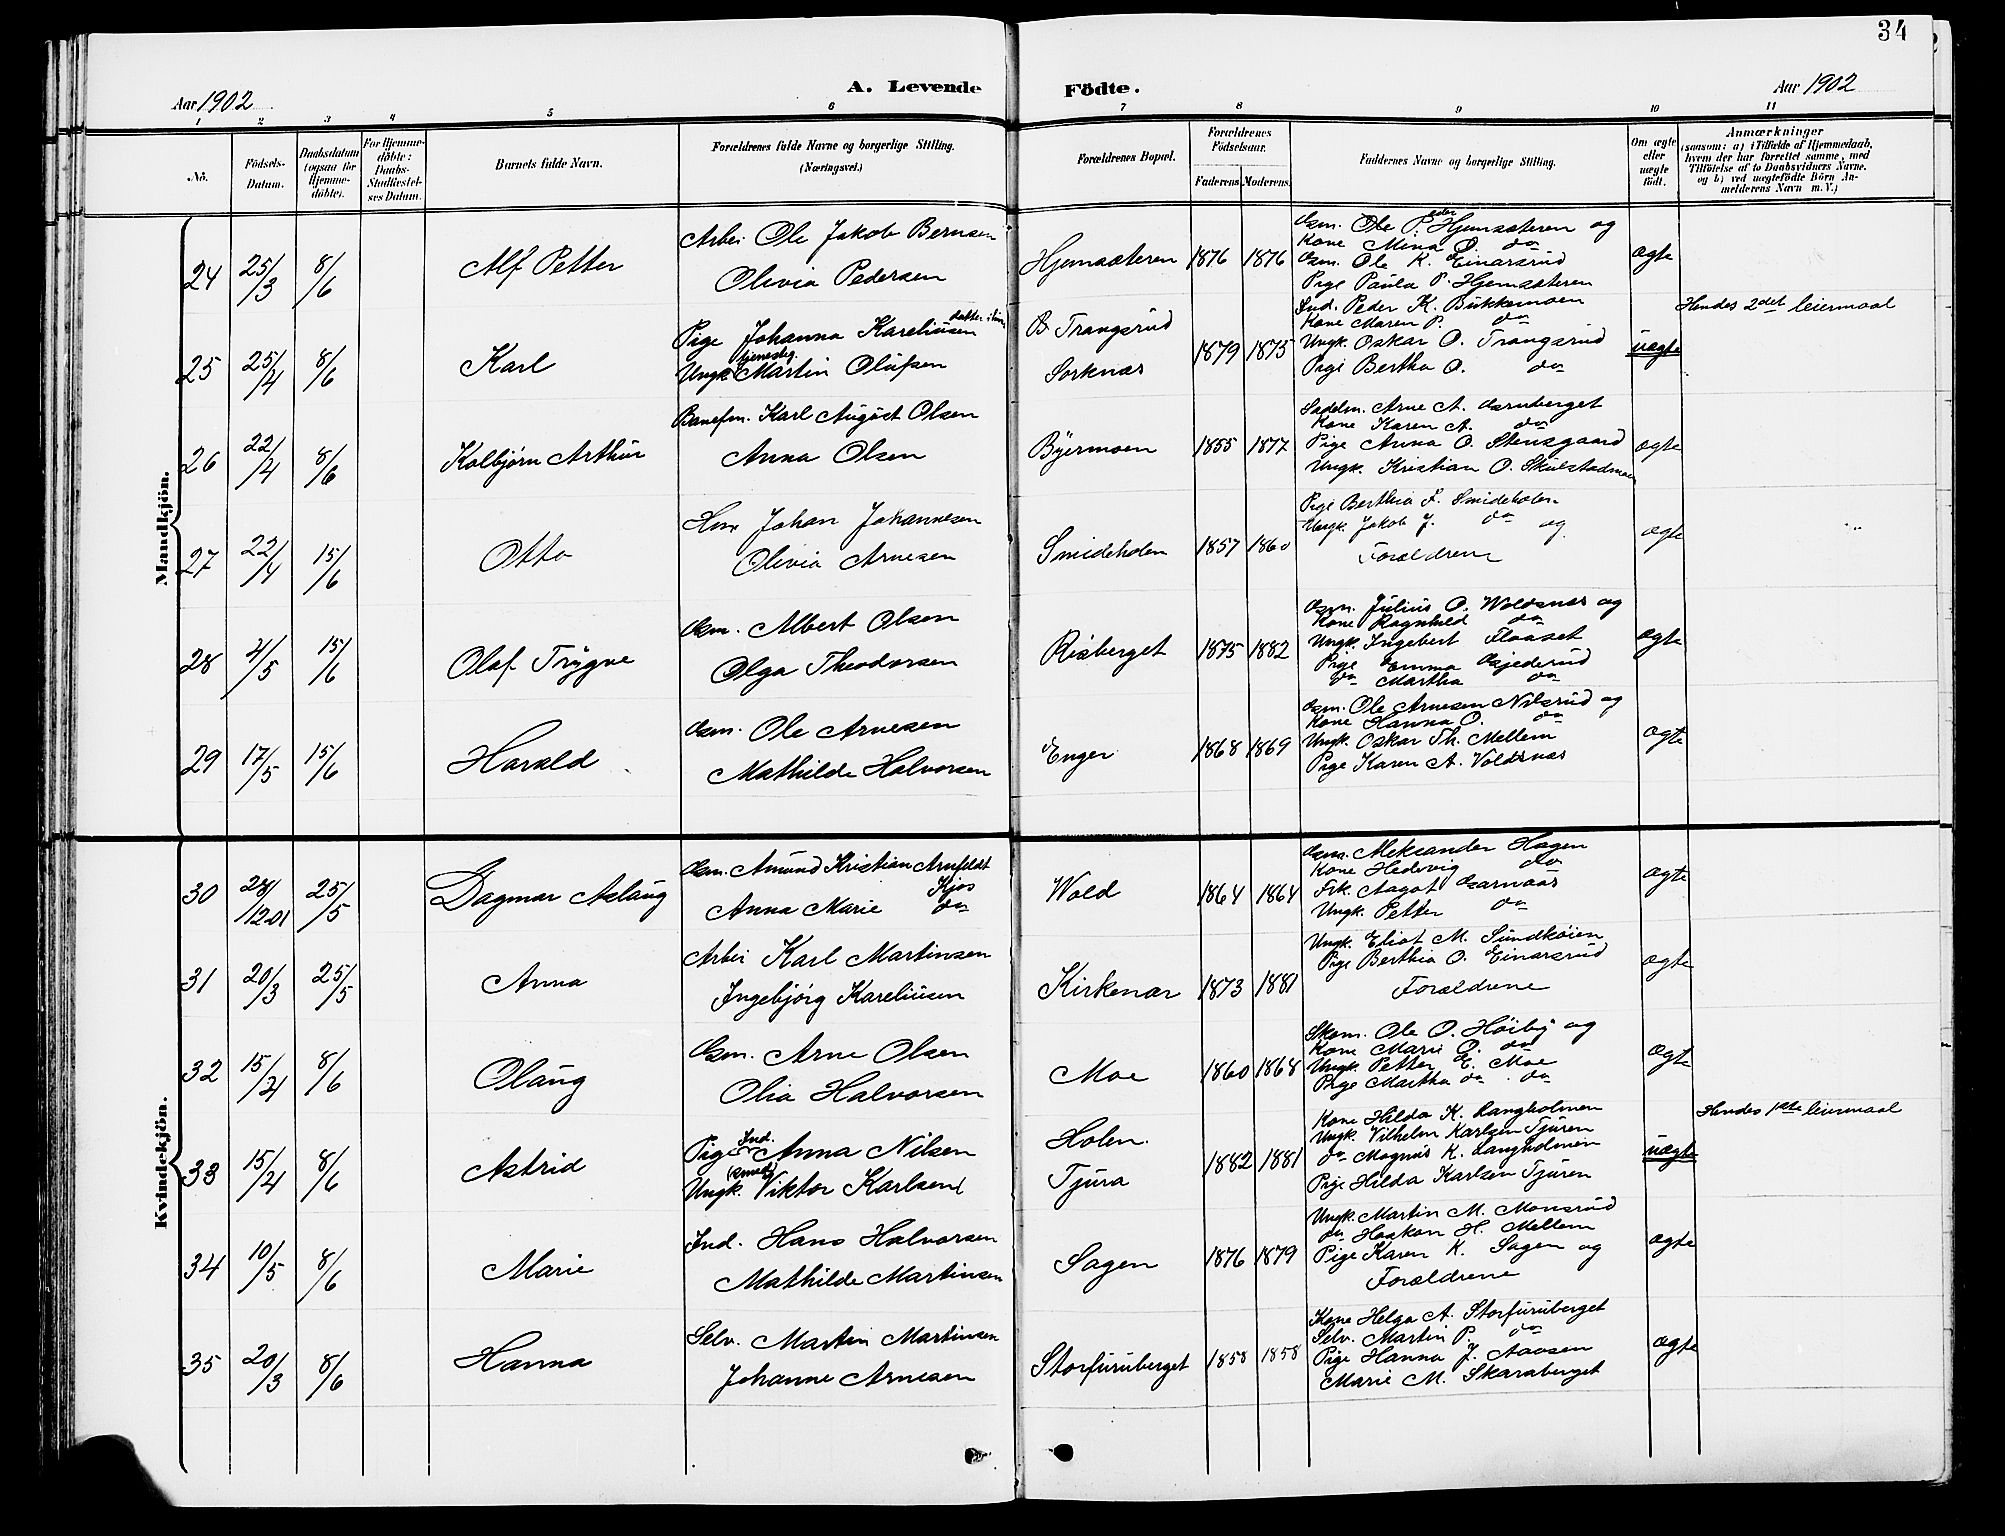 34
Aar 1902
A. Levende
Födte.
Aar 1902
1 2 3 4 5 6 7 8 9 10 11
No.
Födsels-Datum.
Daabsdatum (ogsaa for Hjemme-döbte).
For Hjemme-döbte: Daabs-Stadfæstel-ses Datum.
Barnets fulde Navn.
Forældrenes fulde Navne og borgerlige Stilling. (Næringsvei.)
Forældrenes Bopæl.
Forældrenes Födselsaar.
Faderens Moderens.
Faddernes Navne og borgerlige Stilling.
Om ægte eller uægte födt.
Anmærkninger
(saasom: a) i Tilfælde af Hjemmedaab, hvem der har forrettet samme, med Tilföielse af to Daabsvidners Navne, og b) ved uægtefödte Börn An-melderens Navn m. V.)
Mandkjön.
24 25/3 8/6 Alf Petter
Arbei Ole Jakob Bernsen
Olivia Pedersen
Hjemsæteren 1876 1876
Gsm. Ole Peder Hjemsæteren og
Kone Mina O. do
Gsm. Ole K. Einarsrud
Pige Paula P. Hjemsæteren
ægte
25 25/4 8/6 Karl
Pige Johanna Kareliusen
Ungk. Martin Olufsen
B. Trangsrud
Sorknæs
1879 1875
Ind. Peder K. Bukkemoen
Kone Maren P. do
Ungk. Oskar O. Trangsrud
Pige Bertha O. do
uægte
Hendes 2det leiermaal
26 22/4 8/6 Kolbjørn Arthur
Banefm. Karl August Olsen
Anna Olsen
Byermoen 1855 1877
Sadelm. Arne A. Grnberget
Kone Karen A. do
Pige Anna O. Stensgaard
Ungk. Kristian O. Skulstadmoen
ægte
27 22/4 15/6 Otto
Hmr Johan Johannesen
Olivia Arnesen
Smideholen 1857 1860
Pige Berthia J. Smideholen
Ungk. Jakob J. do og
Forældrene
ægte
28 4/5 15/6 Olaf Trygve
Gsm. Albert Olsen
Olga Theodorsen
Risberget 1875 1882
Gsm. Julius O. Woldsnæs og
Kone Ragnhild do
Ungk. Ingebert Flaaset
Pige Emma Gjederud
do Martha do
ægte
29 17/5 15/6 Harald
Gsm. Ole Arnesen
Mathilde Halvorsen
Enger 1868 1869
Gsm. Ole Arnesen Nilsrud og
Kone Hanna O. do
Ungk. Oskar Th. Mellem
Pige Karen A. Voldsnæs
ægte
Kvindekjön.
30 28/12 01 25/5 Dagmar Aslaug
Gsm. Amund Kristian Arnfeldt Kjos
Anna Marie do
Wold 1864 1864
Gsm. Aleksander Hagen
Kone Hedevig do
Frk. Aagot Garnaas
Ungk. Petter do
ægte
31 20/3 25/5 Anna
Arbei Karl Martinsen
Ingebjørg Kareliusen
Kirkenær 1873 1881
Ungk. Eliot M. Sundkøien
Pige Berthia O. Einarsrud
Forældrene
ægte
32 15/4 8/6 Olaug
Gsm. Arne Olsen
Olia Halvorsen
Moe 1860 1868
Skom. Ole O. Høiby og
Kone Marie O. do
Ungk. Petter E. Moe
Pige Martha do do
ægte
33 15/4 8/6 Astrid
Pige Ind. Anna Nilsen
Ungk. (smed) Viktor Karlsen
Holen
Tjura
1882 1881
Kone Hilda K. Langholmen
Ungk. Vilhelm Karlsen Tjuren
do Magnus K. Langholmen
Pige Hilda Karlsen Tjuren
uægte
Hendes 1ste leiermaal
34 10/5 8/6 Marie
Ind. Hans Halvorsen
Mathilde Martinsen
Sagen 1876 1879
Ungk. Martin M. Monsrud
do Haakon H. Mellem
Pige Karen K. Sagen og
Forældrene
ægte
35 20/3 8/6 Hanna
Selv. Martin Martinsen
Johanne Arnesen
Storfuruberget 1858 1858
Kone Helga A. Storfuruberget
Selv. Martin P. do
Pige Hanna J. Aaosen
Marie M. Skaraberget
ægte